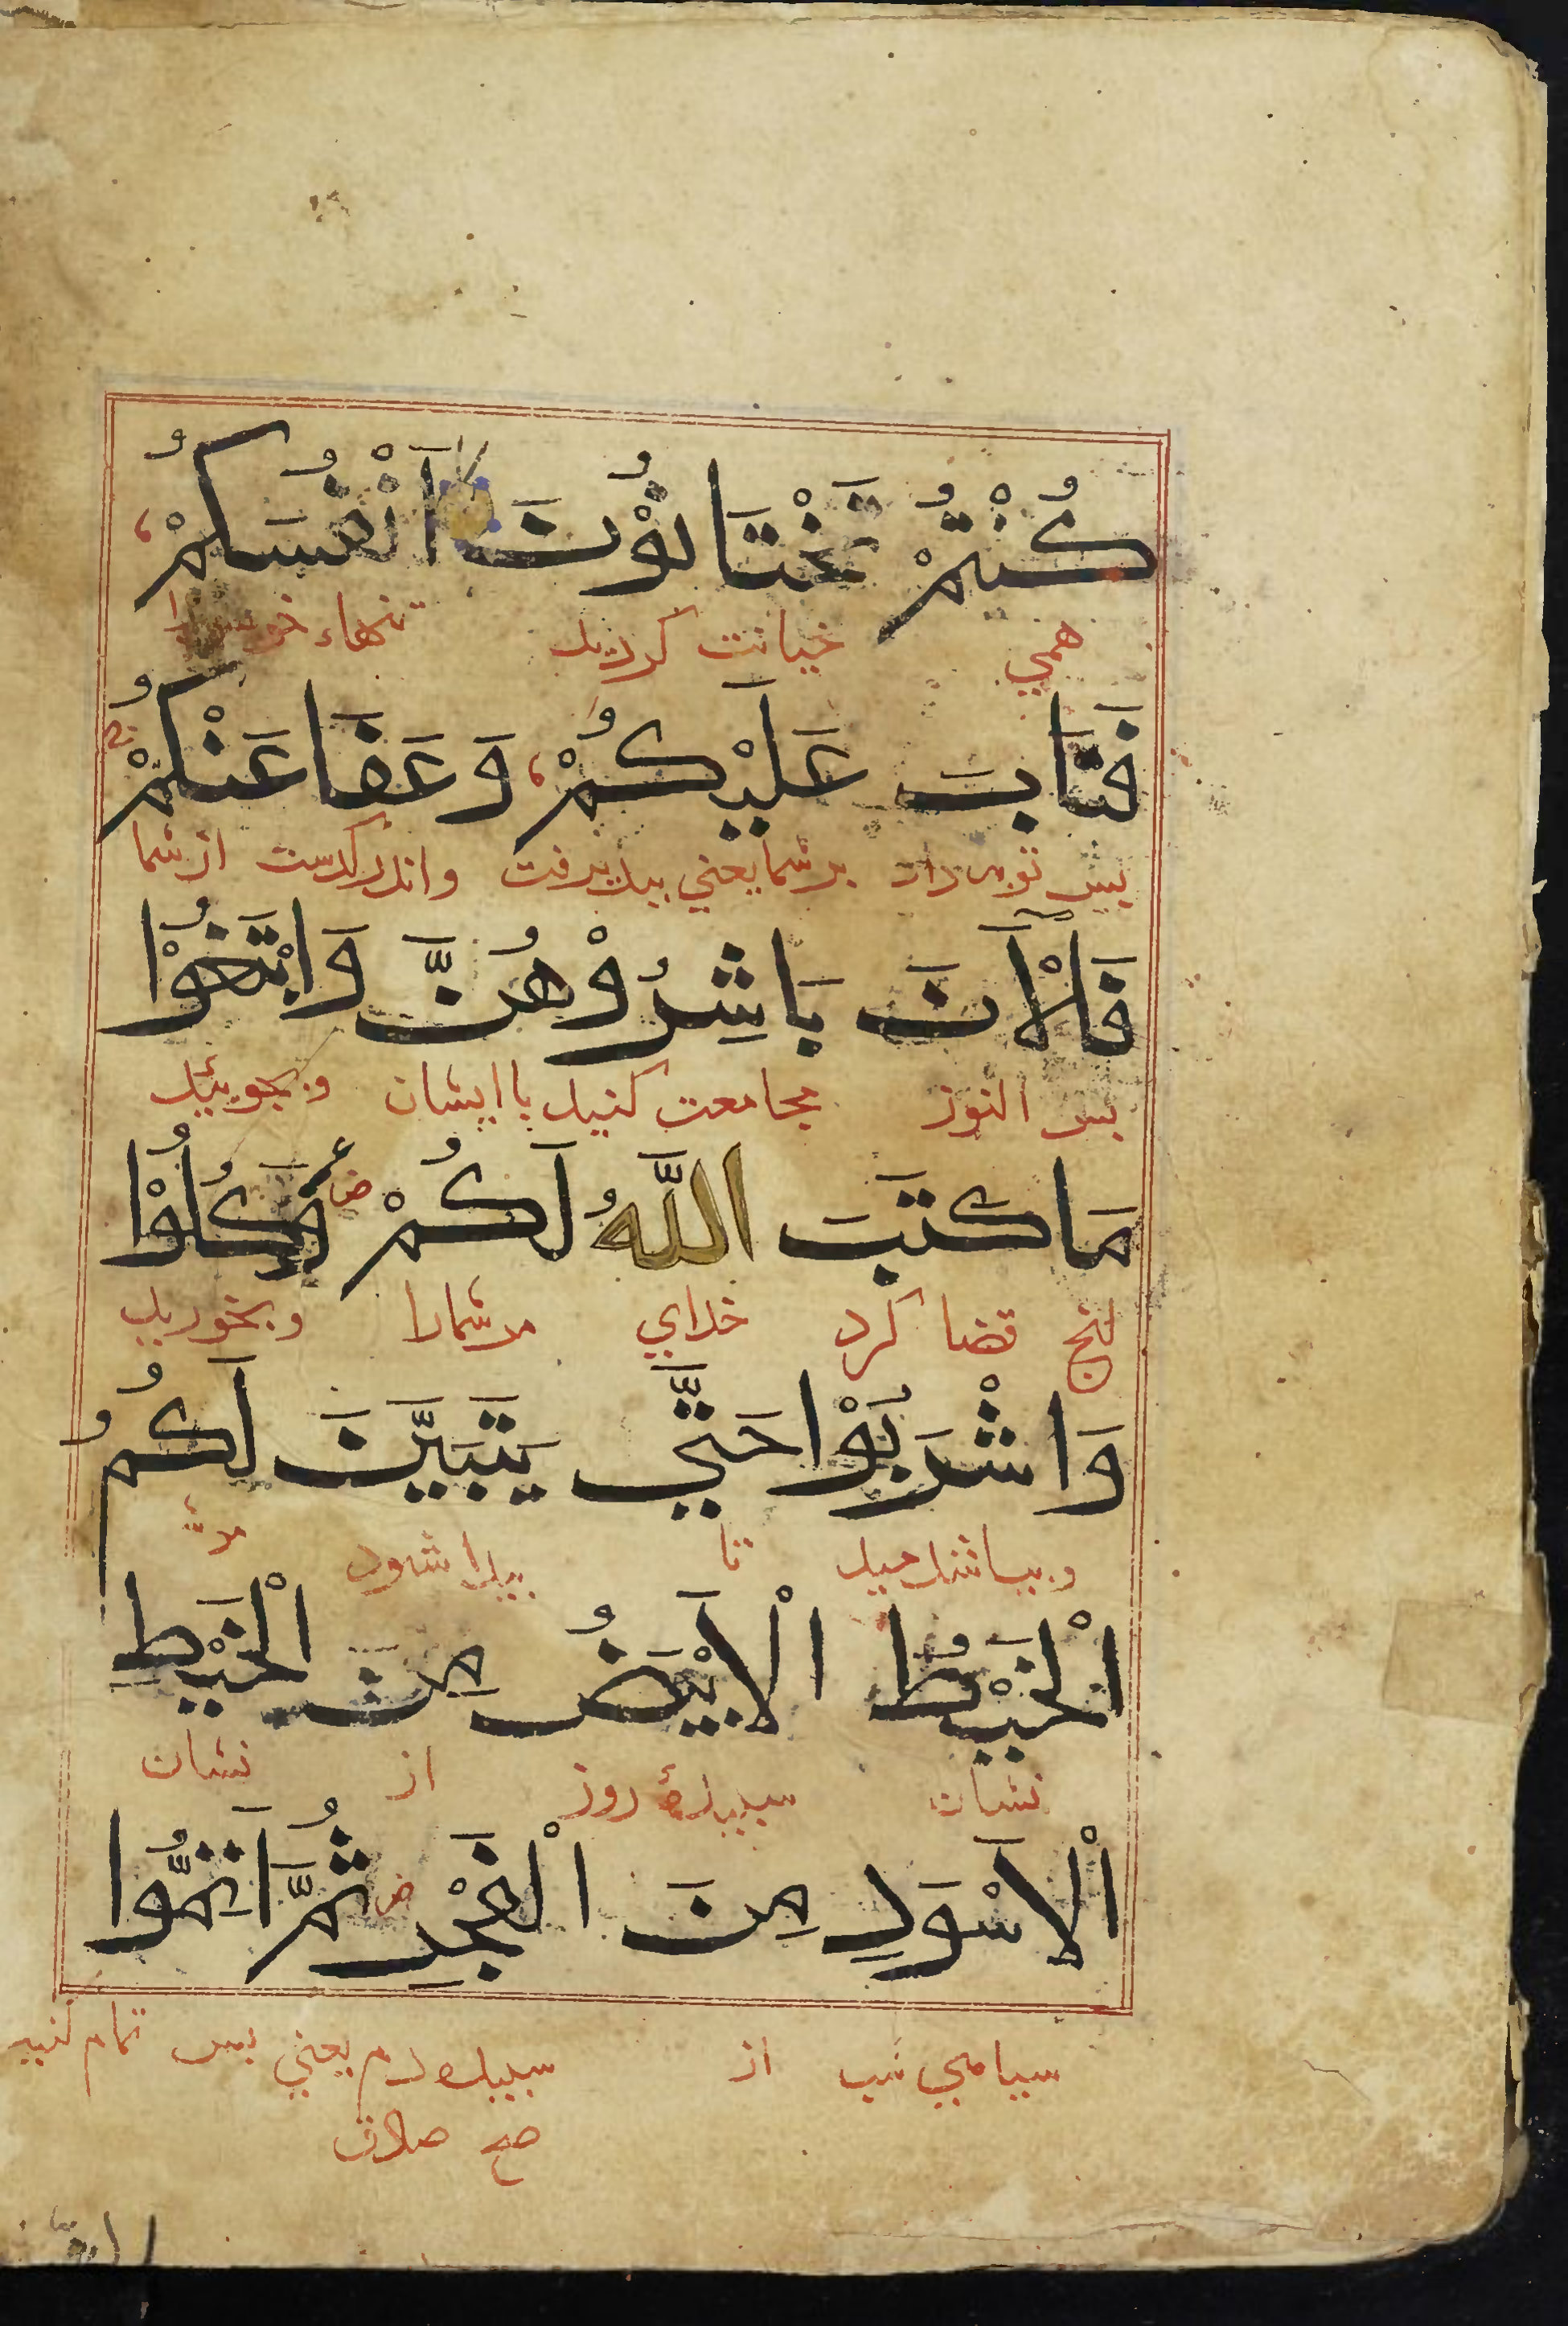 كُنْتُمْ تَخْتَانُوْنَ اَنْفُسَكُمْ
همي خیانت کردید تنهاء
فَتَابَ عَلَيْكُمْ وَعَفَا عَنْكُمْ
پس توبه داد بر شما یعنی بپذیرفت واندر گذشت از شما
فَالْآنَ بَاشِرُوْهُنَّ وَابْتَغُوْا
پس اکنون مجامعت کنید با ایشان و بجوییذ
مَا كَتَبَ اللَّهُ لَكُمْ وَكُلُوْا
انج قضا کرد خدای مر شمارا و بخورید
وَاشْرَبُوْا حَتَّي يَتَبَيَّنَ لَكُمُ
و بیاشامید تا پیدا شود
الْخَيْطُ الْاَبْيَضُ مِنَ الْخَيْطِ
نشان سپیدهٔ روز از نشان
الْاَسْوَدِ مِنَ الْفَجْرِ ثُمَّ اَتِمُّوا
سیاهي شب از سپیده دم یعنی پس تمام کنید
صبح صادق